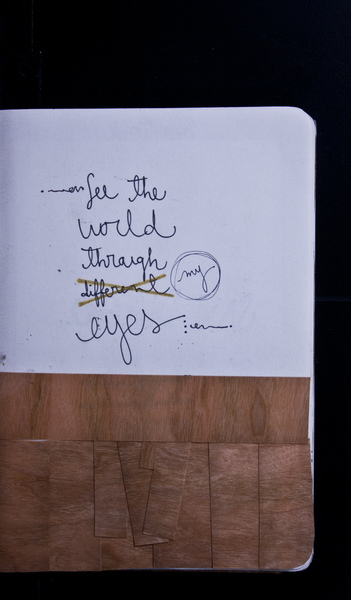 See the
world
through
different my
eyes